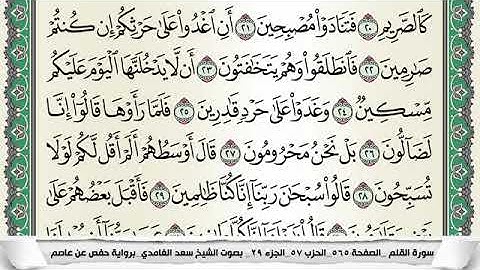 كَالصَّرِيمِ ٢٠ فَتَنَادَوْا۟ مُصْبِحِينَ ٢١ أَنِ ٱغْدُوا۟ عَلَىٰ حَرْثِكُمْ إِن كُنتُمْ
صَٰرِمِينَ ٢٢ فَٱنطَلَقُوا۟ وَهُمْ يَتَخَٰفَتُونَ ٢٣ أَن لَّا يَدْخُلَنَّهَا ٱلْيَوْمَ عَلَيْكُم
مِّسْكِينٌ ٢٤ وَغَدَوْا۟ عَلَىٰ حَرْدٍ قَٰدِرِينَ ٢٥ فَلَمَّا رَأَوْهَا قَالُوٓا۟ إِنَّا
لَضَآلُّونَ ٢٦ بَلْ نَحْنُ مَحْرُومُونَ ٢٧ قَالَ أَوْسَطُهُمْ أَلَمْ أَقُل لَّكُمْ لَوْلَا
تُسَبِّحُونَ ٢٨ قَالُوا۟ سُبْحَٰنَ رَبِّنَآ إِنَّا كُنَّا ظَٰلِمِينَ ٢٩ فَأَقْبَلَ بَعْضُهُمْ عَلَىٰ
سورة القلم _الصفحة ٥٦٥_ الحزب ٥٧_ الجزء ٢٩_ بصوت الشيخ سعد الغامدي_برواية حفص عن عاصم